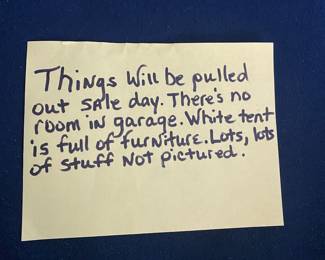 Things will be pulled
out SAle day. There's no
room in garage. White tent
is full of furNiture. Lots, lots
of stuff Not pictured.